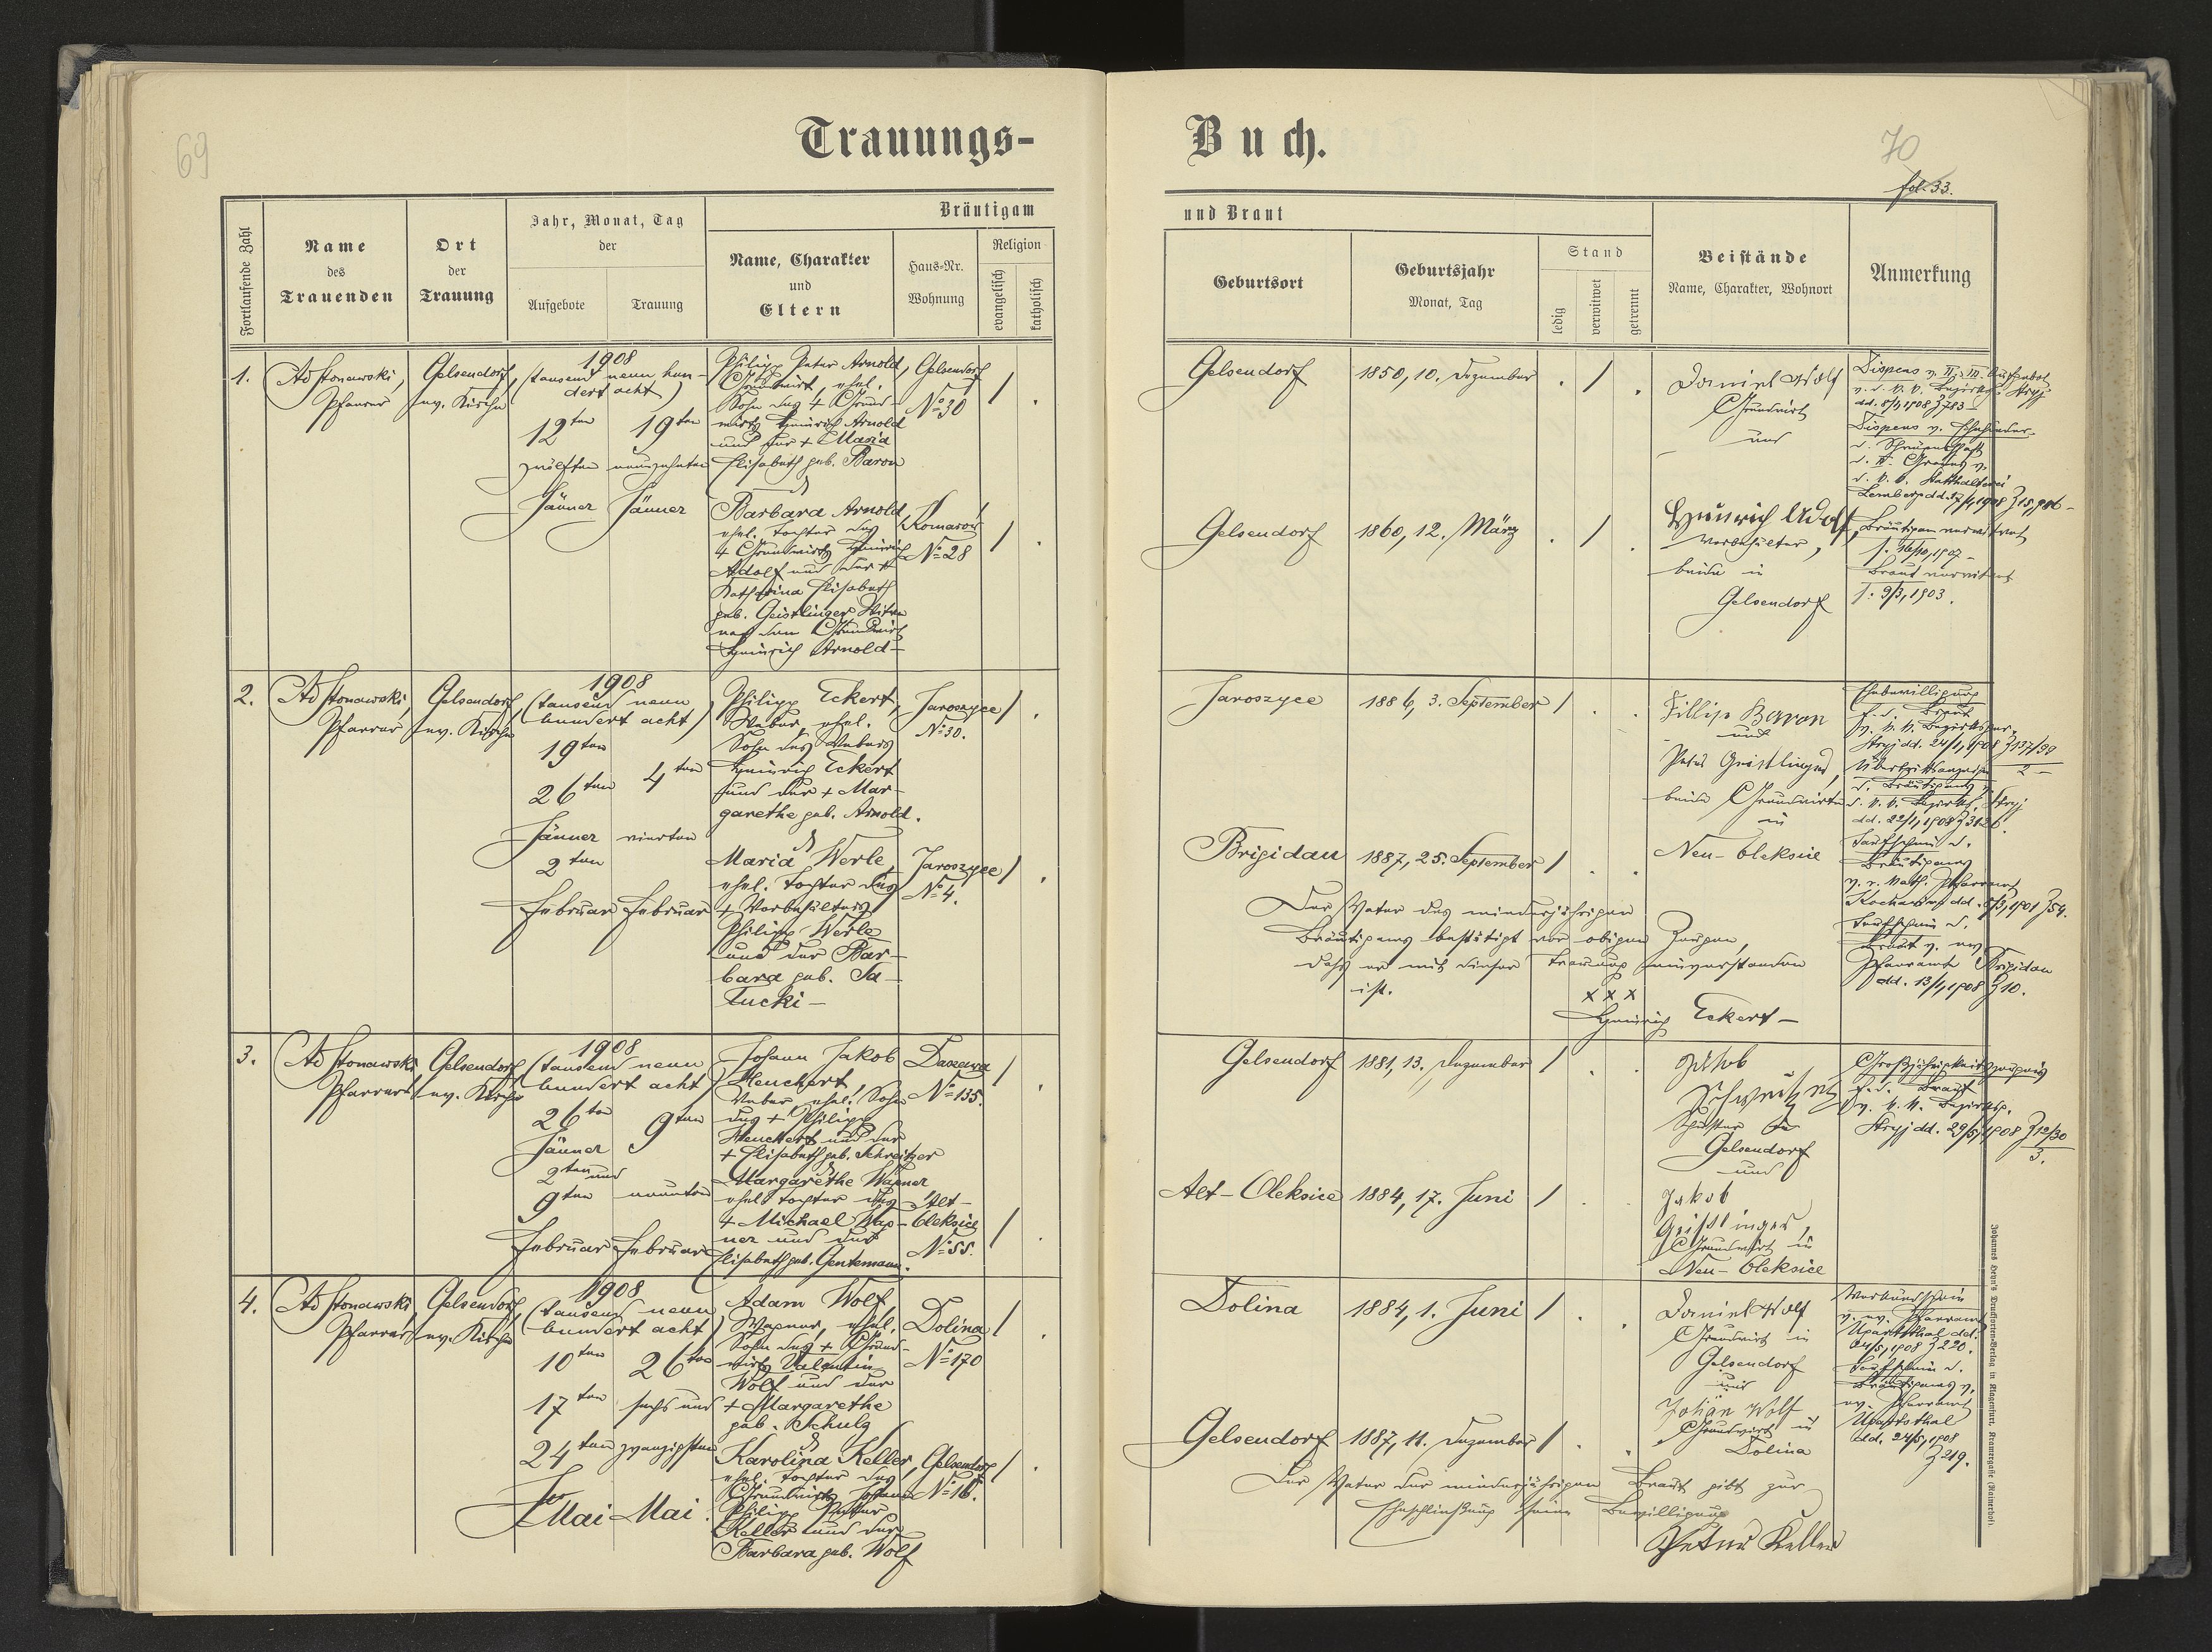 69
Trauungs-
Fortlaufende Zahl
Name
des
Trauenden
Ort
der
Trauung
Jahr, Monat, Tag
der
Aufgebote
Trauung
Bräutigam
Name, Charakter
und
Eltern
Haus-Nr.
Wohnung
Religion
evangelisch
katholisch
1.
Ad Stonawski,
Pfarrer
Gelsendorf,
ev. Kirche
1908
(tausend neun hun-
dert acht)
12ten 19ten
zwölften neunzehnten
Jänner Jänner
Philipp Peter Arnold,
Grundwirt, ehel.
Sohn des + Grund-
wirts Heinrich Arnold
und der + Maria
Elisabeth geb. Baron
Gelsendorf
No 30
/ .
&
Barbara Arnold,
ehel. Tochter des
+ Grundwirts Heinrich
Adolf und der +
Katharina Elisabeth
geb. Geistlinger Witwe
nach dem Grundwirt
Heinrich Arnold –
Komarów
No 28
/ .
2.
Ad Stonawski,
Pfarrer
Gelsendorf,
ev. Kirche
1908
(tausend neun
hundert acht)
19ten
26ten 4ten
Jänner vierten
2ten
Februar Februar
Philipp Eckert,
Weber, ehel.
Sohn des Webers
Heinrich Eckert
und der + Mar-
garethe geb. Arnold.
Jaroszyce
No 30.
/ .
&
Maria Werle,
ehel. Tochter des
+ Vorbehälters
Philipp Werle
und der Bar-
bara geb. Sa-
lucki –
Jaroszyce
No 4.
/ .
3.
Ad Stonawski
Pfarrer
Gelsendorf
ev. Kirche
1908
(tausend neun
hundert acht)
26ten
Jänner 9ten
2ten und
9ten neunten
Februar Februar
Johann Jakob
Heuchert,
Weber, ehel. Sohn
des + Philipp
Heuchert und der
+ Elisabeth geb. Schreitzer
Daszawa
No 135.
/ .
&
Margarethe Wagner
ehel. Tochter des
+ Michael Wag-
ner und der
Elisabeth geb. Gentemann.
Alt-
Oleksice
No 55.
/ .
4.
Ad Stonawski
Pfarrer
Gelsendorf,
ev. Kirche
1908
(tausend neun
hundert acht)
10ten 26ten
17ten sechs und
24ten zwanzigsten
Mai Mai.
Adam Wolf,
Wagner, ehel.
Sohn des + Grund-
wirts Valentin
Wolf und der
+ Margarethe
geb. Schulz
Dolina
No 170
/ .
&
Karolina Keller,
ehel. Tochter des
Grundwirts Johann
Philipp Peter
Keller und der
Barbara geb. Wolf
Gelsendorf
No 16.
/ .
Buch.
70
fol. 33.
und Braut
Geburtsort
Geburtsjahr
Monat, Tag
Stand
ledig
verwitwet
getrennt
Beistände
Name, Charakter, Wohnort
Anmerkung
Gelsendorf
1850, 10. Dezember
. / .
Daniel Wolf
Grundwirt
und
Dispens v. II. u. III. Aufgebot
v. d. k. k. Bezirksh. Stryj
dd. 8/1, 1908 Z 783 –
Dispens v. Ehehinder-
d. Schwägerschaft
d. II. Grades v.
d. k. k. Statthalterei
Lemberg dd. 1908
Gelsendorf
1860, 12. März
. / .
Heinrich Adolf,
Vorbehälter,
beide in
Gelsendorf
Bräutigam verwitwet
s. 26/10, 1907 –
Braut verwitwet
s. 9/3, 1903.
Jaroszyce
1886, 3. September
/ . .
Fillip Baron
und
Peter Geistlinger,
beide Grundwirte
in
Neu-Oleksice
Ehebewilligung
f. d. Braut
v. k. k. Bezirksger.
Stryj dd. 24/1, 1908 Z 137/99
2 –
Übertrittsanzeige
d. Bräutigams v.
d. k. k. Bezirksh. Stryj
dd. 22/1, 1908 Z 3126.
Brigidau
1887, 25. September
/ . .
Taufschein d.
Bräutigams
v. r. kath. Pfarramt
dd. 1901 Z 54.
Taufschein d.
Braut v. ev.
Pfarramte Brigidau
dd. 13/1, 1908 Z 10.
Der Vater des minderjährigen
Bräutigams bestätigt vor obigen Zeugen,
daß er mit dieser Trauung einverstanden
ist.
x x x
Heinrich Eckert –
Gelsendorf
1881, 13. Dezember
/ . .
Jakob
Schweitzer
Schuster in
Gelsendorf
und
Großjährigkeitszeugnis
f. d. Braut
v. k. k. Bezirksg.
Stryj dd. 1908 Z 12/30
3.
Alt-Oleksice
1884, 17. Juni
/ . .
Jakob
Geistlinger,
Grundwirt in
Neu-Oleksice
Dolina
1884, 1. Juni
/ . .
Daniel Wolf
Grundwirt in
Gelsendorf
und
Johan Wolf
Grundwirt in
Dolina
Verkündschein
v. ev. Pfarramt
Ugartsthal dd.
24/5, 1908 Z 220.
Taufschein d.
Bräutigams v.
ev. Pfarramt
Ugartsthal
dd. 24/5, 1908
Z 219.
Gelsendorf
1887, 11. Dezember
/ . .
Der Vater der minderjährigen Braut gibt zur
Eheschließung seine Bewilligung
Peter Keller
Johannes Heyn's Drucksorten-Verlag in Klagenfurt, Kramergasse (Rainerhof).